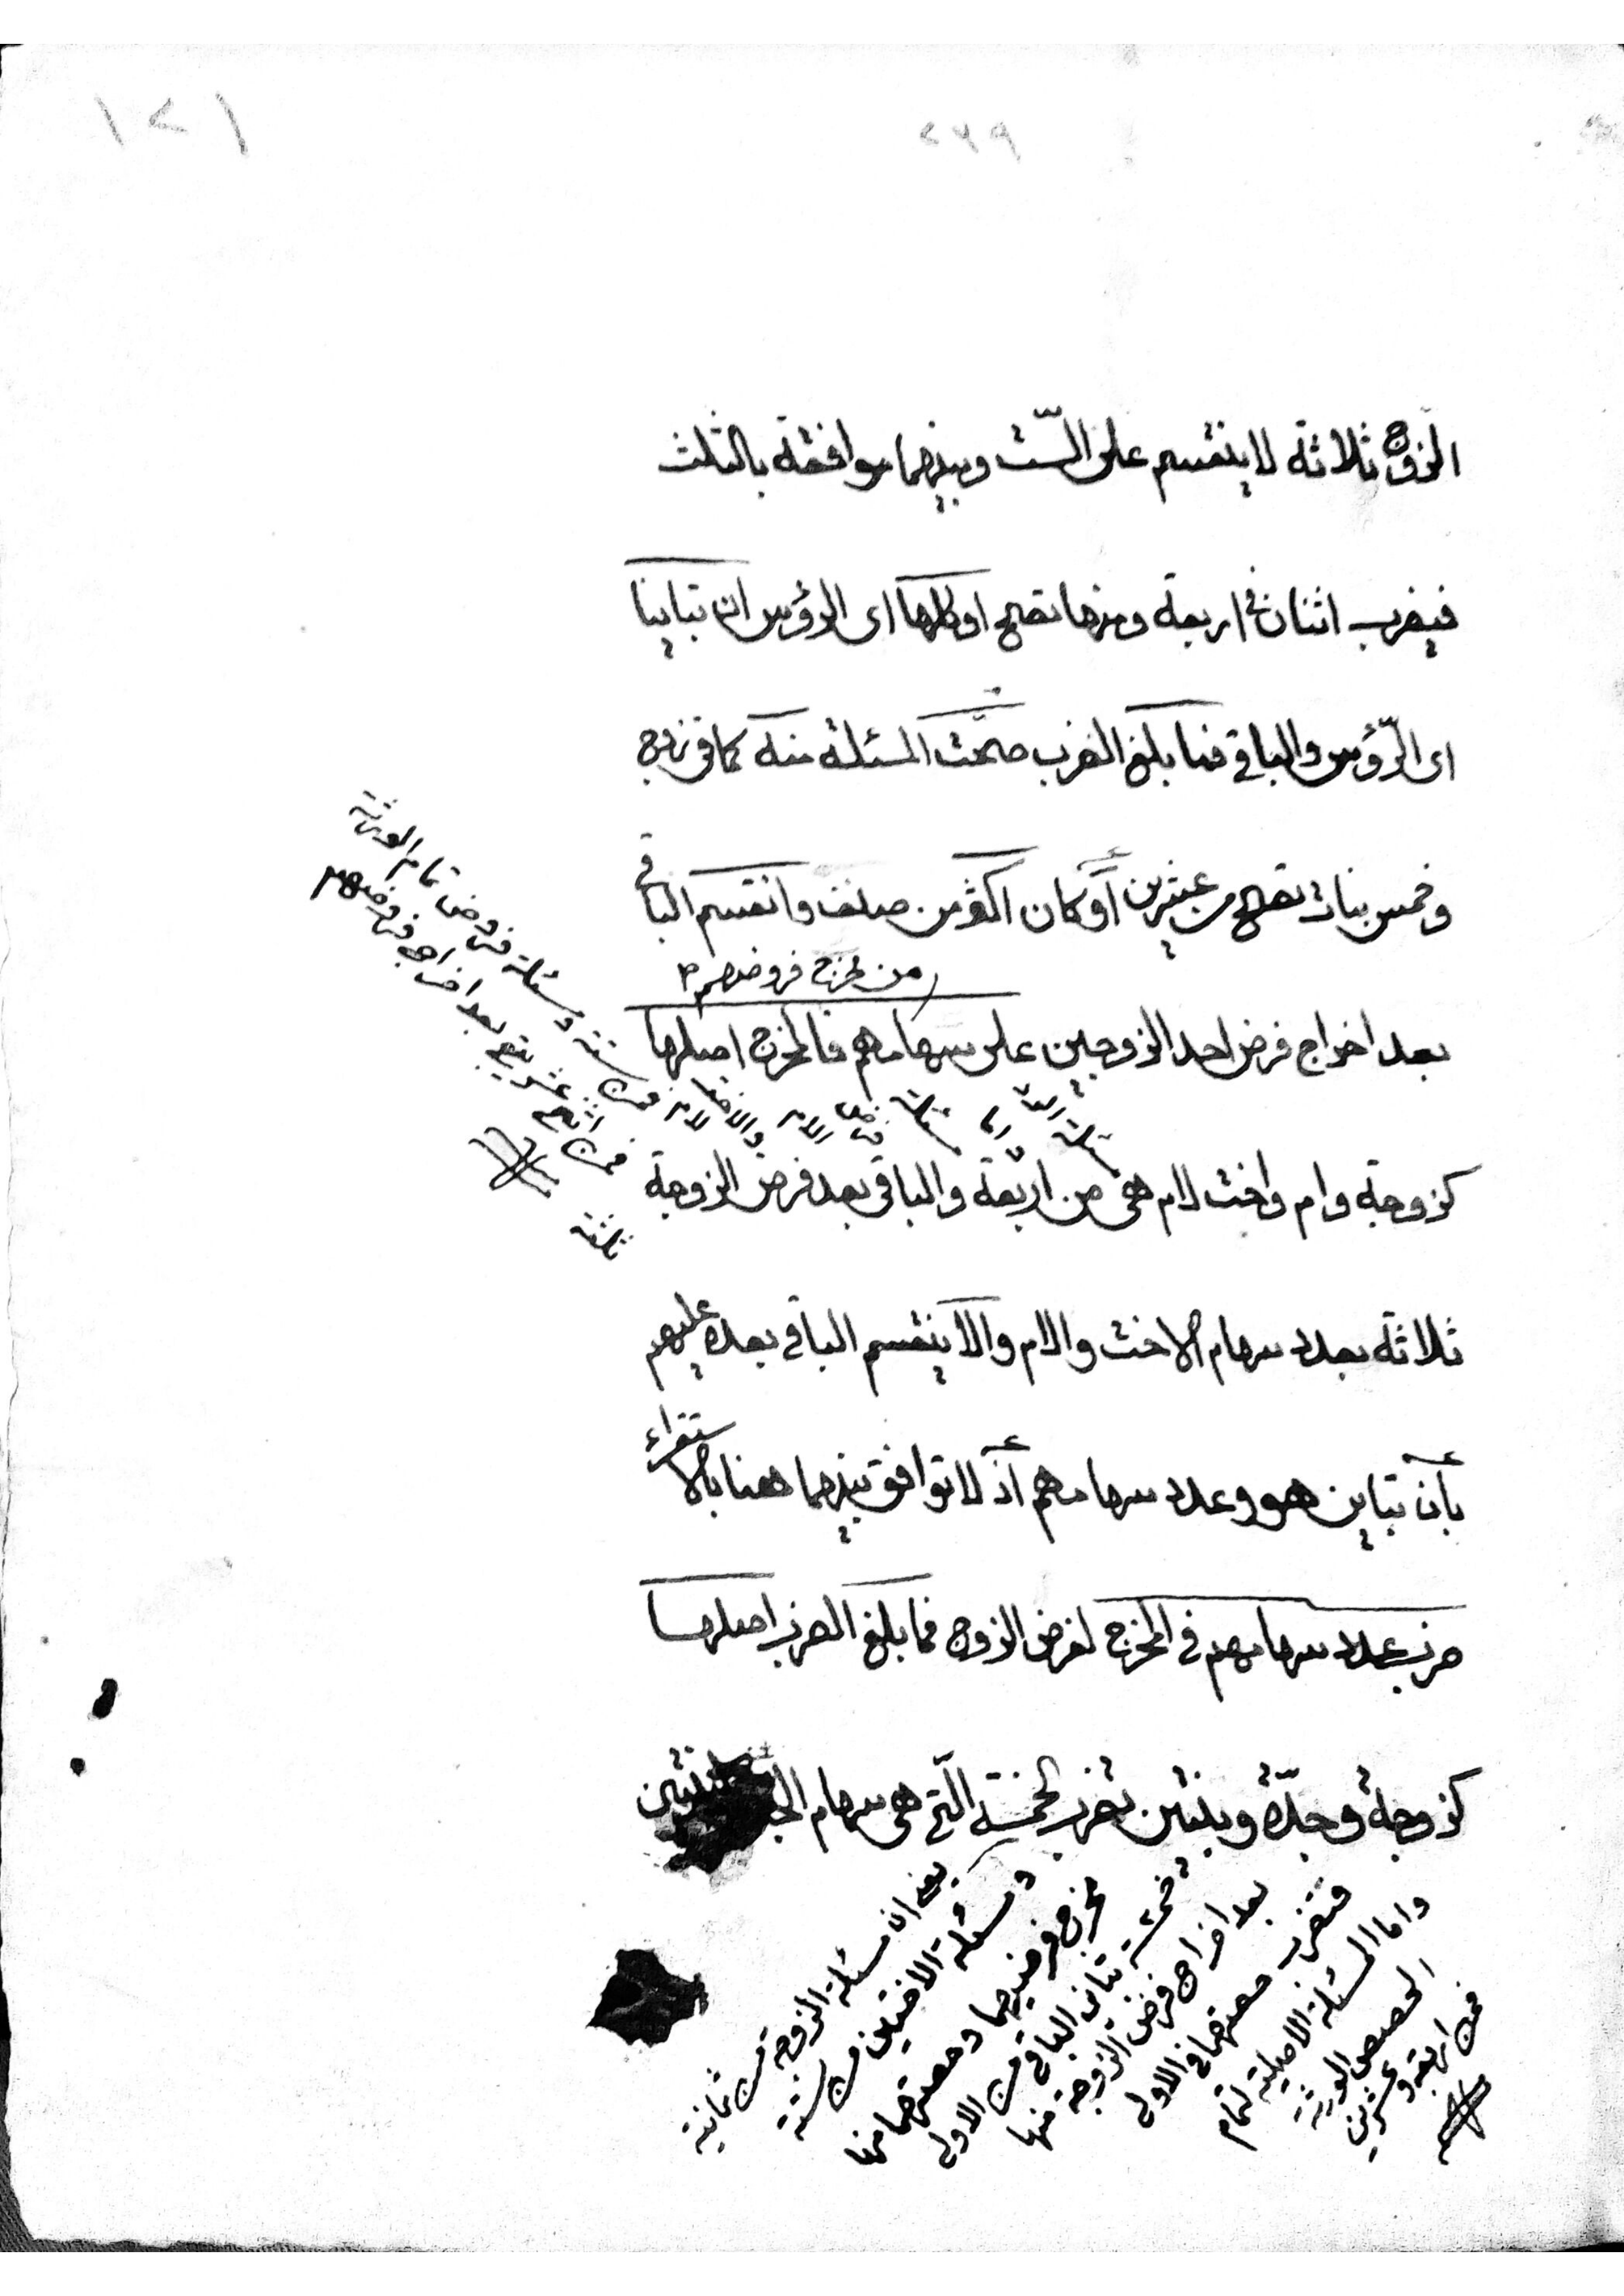 ١٢١
٢٧٩
الزوج ثلاثة لا ينقسم على الستّ وبينهما موافقة بالثلث
فيضرب اثنان في اربعة ومنها تصح او كلها اى الرؤس ان تباينا
اى الرّؤس والباقي فما بلغ الضرب صحّت المسئلة منه كما في زوج
وخمس بنات تصح من عشرين أو كان اكثر من صنف وانقسم الباقي
من مخرج فروضهم
بعد اخراج فرض احد الزوجين على سهامهم فالمخرج اصلها
كزوجة وام واخت لام هى من اربعة والباقى بعد فرض الزوجة
ثلاثة بعدد سهام الاخت والام والا ينقسم الباقى بعده عليهم
بأن تباين هو وعدد سهامهم أذ لا توافق بينهما هنا بالاستقراء
ضرب عدد سهامهم فى المخرج لفرض الزوج فما بلغ الضرب اصلها
كزوجة وجدّة وبنتين تضرب الخمسة الّتي هى سهام
ستة ومسئلة فروض تمام الورثة
بعد اخراج فروضهم
ثلثة
يعنى ان مسئلة الزوجة من ثمانية
ومسئلة الاختين من ستة
مخرج فرضيهما وحصتهما منها
خمسة تباين الباقى من الاولى
بعد اخراج فرض الزوجة منها
فتضرب حصتهما فى الاولى
واما المسئلة الاصلية لتمام
الحصص الورثة
فمن اربعة وعشرين